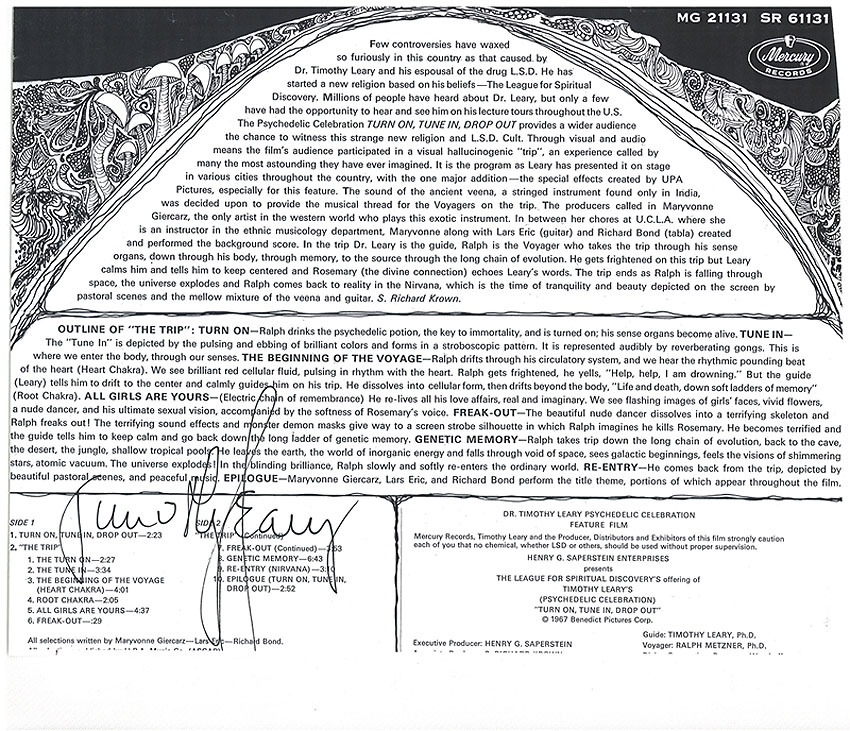 MG 21131 SR 61131
Mercury
RECORDS
Few controversies have waxed
so furiously in this country as that caused by
Dr. Timothy Leary and his espousal of the drug L.S.D. He has
started a new religion based on his beliefs—The League for Spiritual
Discovery. Millions of people have heard about Dr. Leary, but only a few
have had the opportunity to hear and see him on his lecture tours throughout the U.S.
The Psychedelic Celebration TURN ON, TUNE IN, DROP OUT provides a wider audience
the chance to witness this strange new religion and L.S.D. Cult. Through visual and audio
means the film's audience participated in a visual hallucinogenic "trip", an experience called by
many the most astounding they have ever imagined. It is the program as Leary has presented it on stage
in various cities throughout the country, with the one major addition—the special effects created by UPA
Pictures, especially for this feature. The sound of the ancient veena, a stringed instrument found only in India,
was decided upon to provide the musical thread for the Voyagers on the trip. The producers called in Maryvonne
Giercarz, the only artist in the western world who plays this exotic instrument. In between her chores at U.C.L.A. where she
is an instructor in the ethnic musicology department, Maryvonne along with Lars Eric (guitar) and Richard Bond (tabla) created
and performed the background score. In the trip Dr. Leary is the guide, Ralph is the Voyager who takes the trip through his sense
organs, down through his body, through memory, to the source through the long chain of evolution. He gets frightened on this trip but Leary
calms him and tells him to keep centered and Rosemary (the divine connection) echoes Leary's words. The trip ends as Ralph is falling through
space, the universe explodes and Ralph comes back to reality in the Nirvana, which is the time of tranquility and beauty depicted on the screen by
pastoral scenes and the mellow mixture of the veena and guitar. S. Richard Krown.
OUTLINE OF "THE TRIP": TURN ON—Ralph drinks the psychedelic potion, the key to immortality, and is turned on; his sense organs become alive. TUNE IN—
The "Tune In" is depicted by the pulsing and ebbing of brilliant colors and forms in a stroboscopic pattern. It is represented audibly by reverberating gongs. This is
where we enter the body, through our senses. THE BEGINNING OF THE VOYAGE—Ralph drifts through his circulatory system, and we hear the rhythmic pounding beat
of the heart (Heart Chakra). We see brilliant red cellular fluid, pulsing in rhythm with the heart. Ralph gets frightened, he yells, "Help, help, I am drowning." But the guide
(Leary) tells him to drift to the center and calmly guides him on his trip. He dissolves into cellular form, then drifts beyond the body, "Life and death, down soft ladders of memory"
(Root Chakra). ALL GIRLS ARE YOURS—(Electric chain of remembrance) He re-lives all his love affairs, real and imaginary. We see flashing images of girls' faces, vivid flowers,
a nude dancer, and his ultimate sexual vision, accompanied by the softness of Rosemary's voice. FREAK-OUT—The beautiful nude dancer dissolves into a terrifying skeleton and
Ralph freaks out! The terrifying sound effects and monster demon masks give way to a screen strobe silhouette in which Ralph imagines he kills Rosemary. He becomes terrified and
the guide tells him to keep calm and go back down the long ladder of genetic memory. GENETIC MEMORY—Ralph takes trip down the long chain of evolution, back to the cave,
the desert, the jungle, shallow tropical pools. He leaves the earth, the world of inorganic energy and falls through void of space, sees galactic beginnings, feels the visions of shimmering
stars, atomic vacuum. The universe explodes! In the blinding brilliance, Ralph slowly and softly re-enters the ordinary world. RE-ENTRY—He comes back from the trip, depicted by
beautiful pastoral scenes, and peaceful music. EPILOGUE—Maryvonne Giercarz, Lars Eric, and Richard Bond perform the title theme, portions of which appear throughout the film.
Timothy Leary
SIDE 1
1. TURN ON, TUNE IN, DROP OUT—2:23
2. "THE TRIP"
1. THE TURN ON—2:27
2. THE TUNE IN—3:34
3. THE BEGINNING OF THE VOYAGE
(HEART CHAKRA)—4:01
4. ROOT CHAKRA—2:05
5. ALL GIRLS ARE YOURS—4:37
6. FREAK-OUT—:29
SIDE 2
"THE TRIP" (Continued)
7. FREAK-OUT (Continued)—3:53
8. GENETIC MEMORY—6:43
9. RE-ENTRY (NIRVANA)—3:10
10. EPILOGUE (TURN ON, TUNE IN,
DROP OUT)—2:52
All selections written by Maryvonne Giercarz—Lars Eric—Richard Bond.
DR. TIMOTHY LEARY PSYCHEDELIC CELEBRATION
FEATURE FILM
Mercury Records, Timothy Leary and the Producer, Distributors and Exhibitors of this film strongly caution
each of you that no chemical, whether LSD or others, should be used without proper supervision.
HENRY G. SAPERSTEIN ENTERPRISES
presents
THE LEAGUE FOR SPIRITUAL DISCOVERY'S offering of
TIMOTHY LEARY'S
(PSYCHEDELIC CELEBRATION)
"TURN ON, TUNE IN, DROP OUT"
© 1967 Benedict Pictures Corp.
Executive Producer: HENRY G. SAPERSTEIN
Guide: TIMOTHY LEARY, Ph.D.
Voyager: RALPH METZNER, Ph.D.